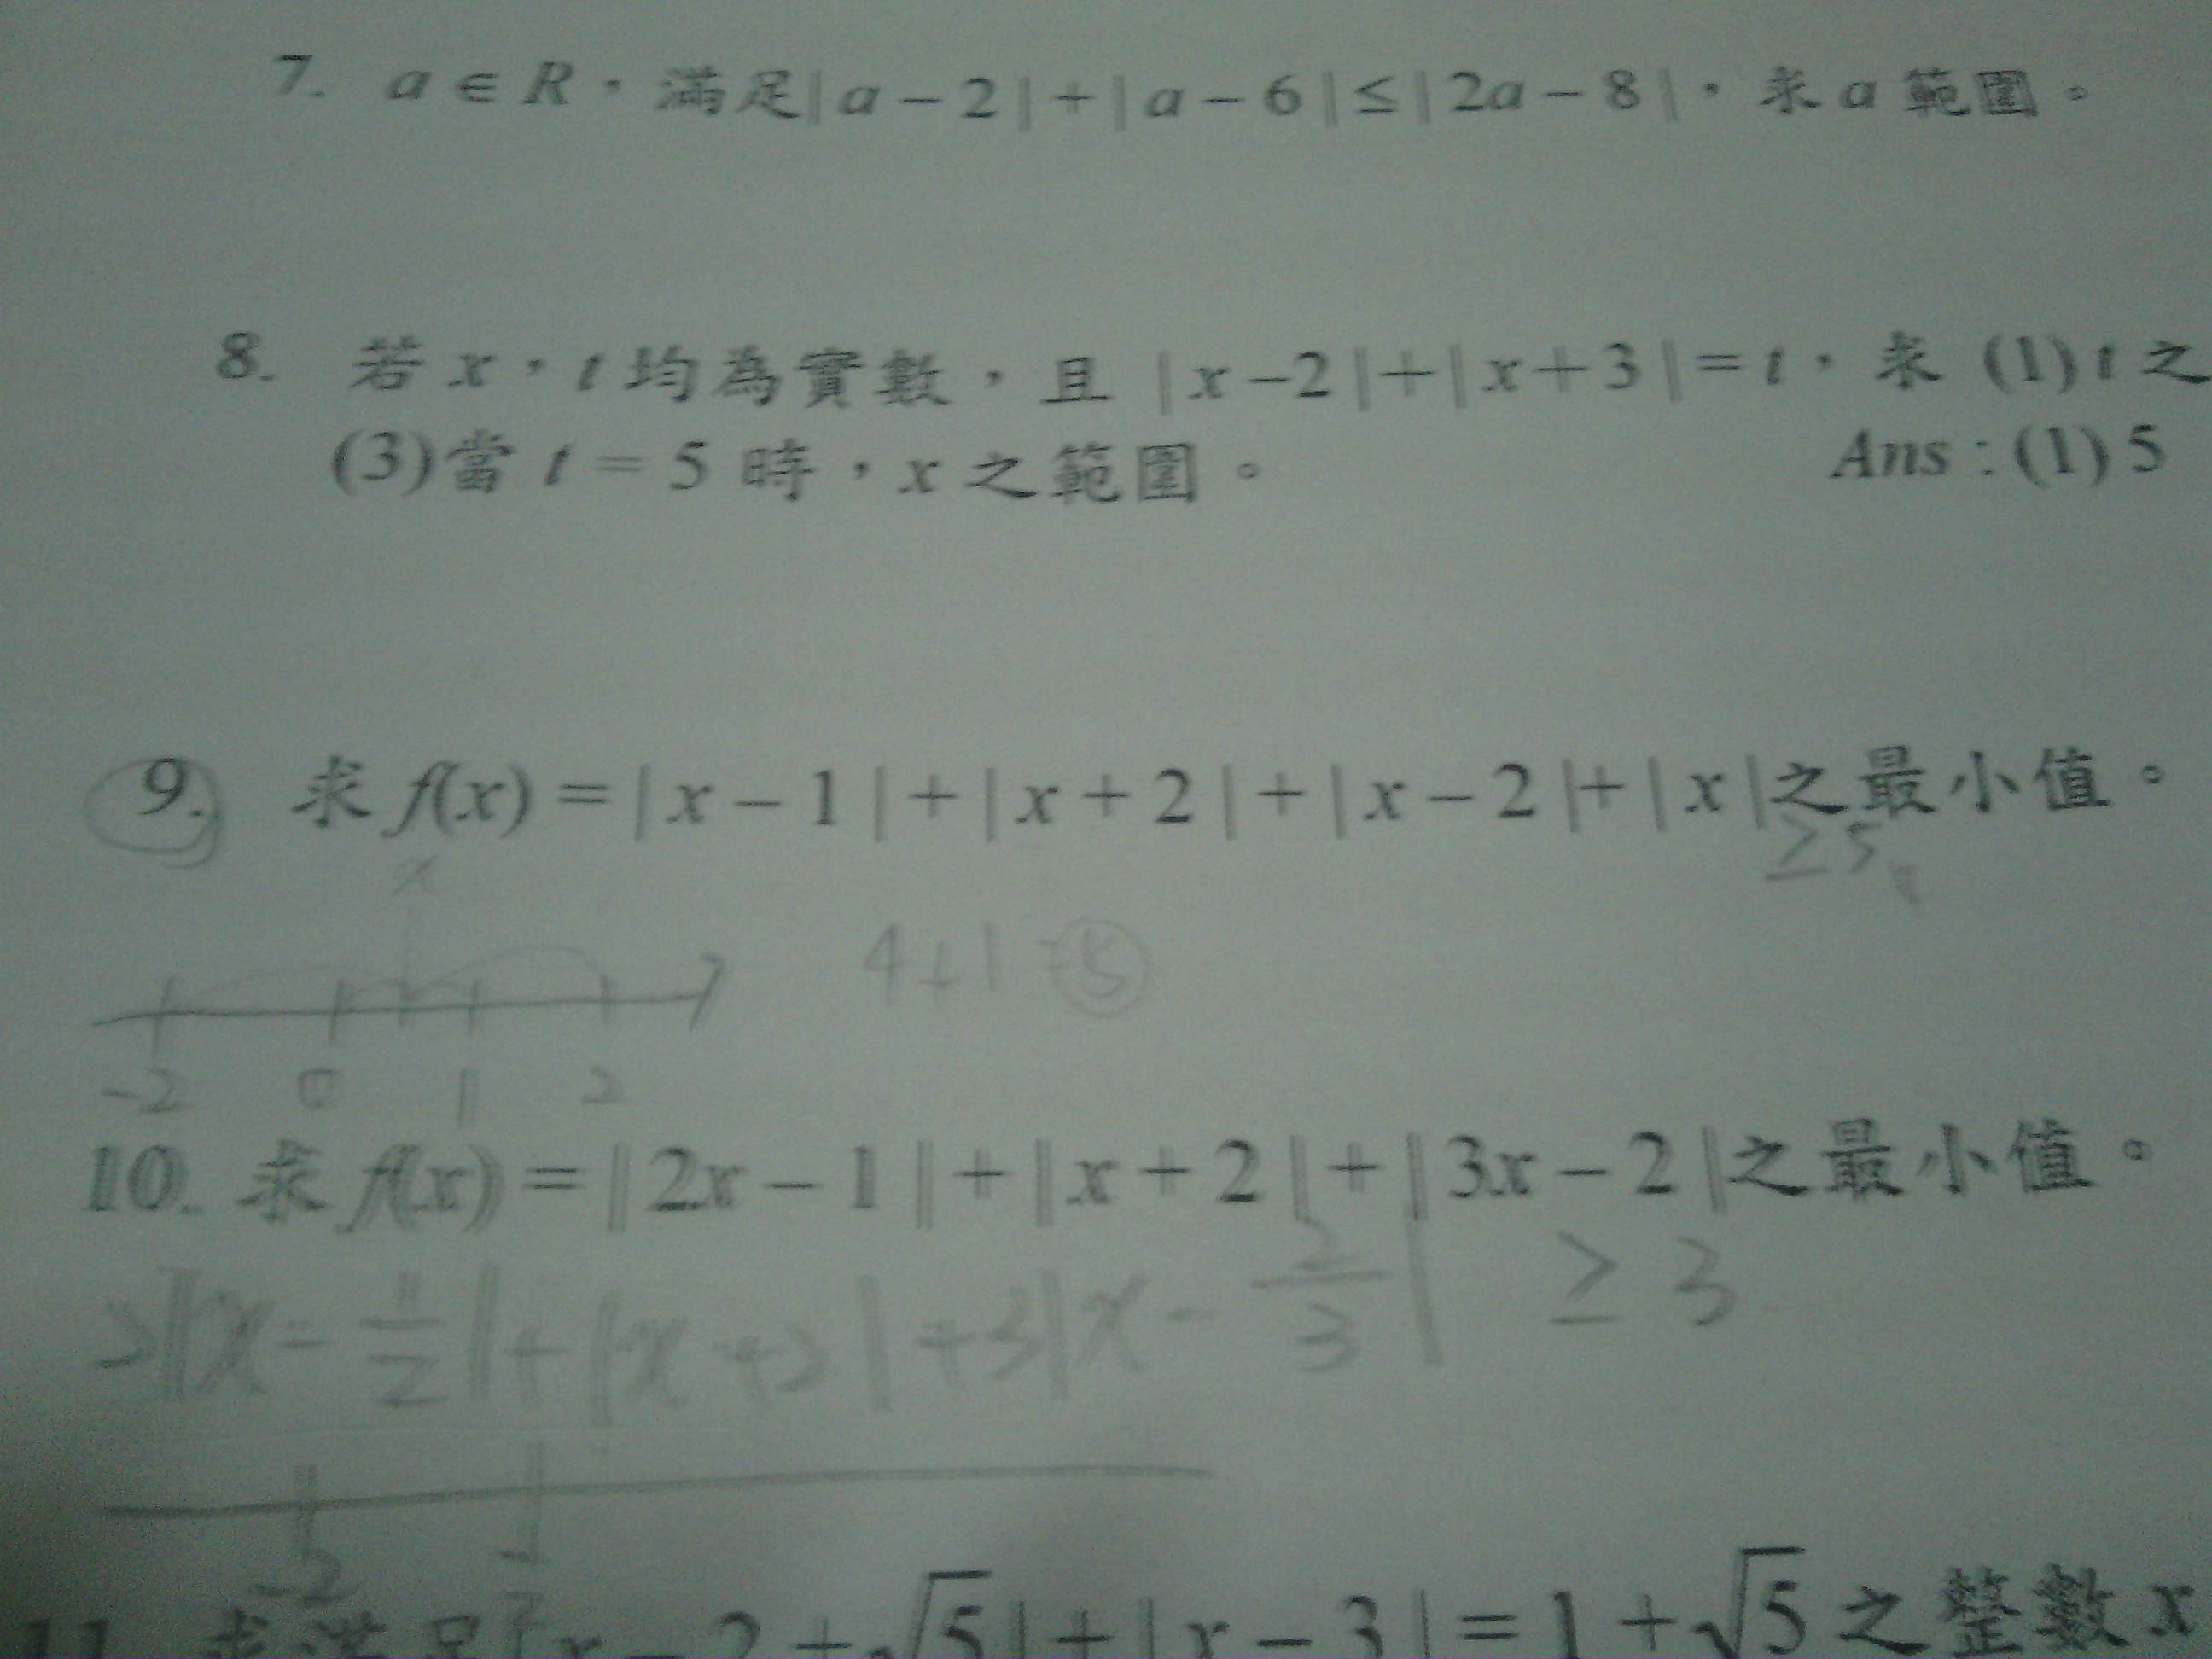 7. a ∈ R，滿足|a－2|+|a－6|≤|2a－8|，求 a 範圍。
8. 若 x，t 均為實數，且 |x－2|+|x+3|=t，求 (1) t 之
(3)當 t = 5 時，x 之範圍。 Ans：(1) 5
9. 求 f(x) = |x－1|+|x+2|+|x－2|+|x|之最小值。
≥5
x
4+1=5
-2 0 1 2
10. 求 f(x) = |2x－1|+|x+2|+|3x－2|之最小值。
2|x-1/2|+|x+2|+3|x-2/3| ≥ 3
-2 1/2
11. 求滿足|x－2+√5|+|x－3|=1+√5 之整數 x